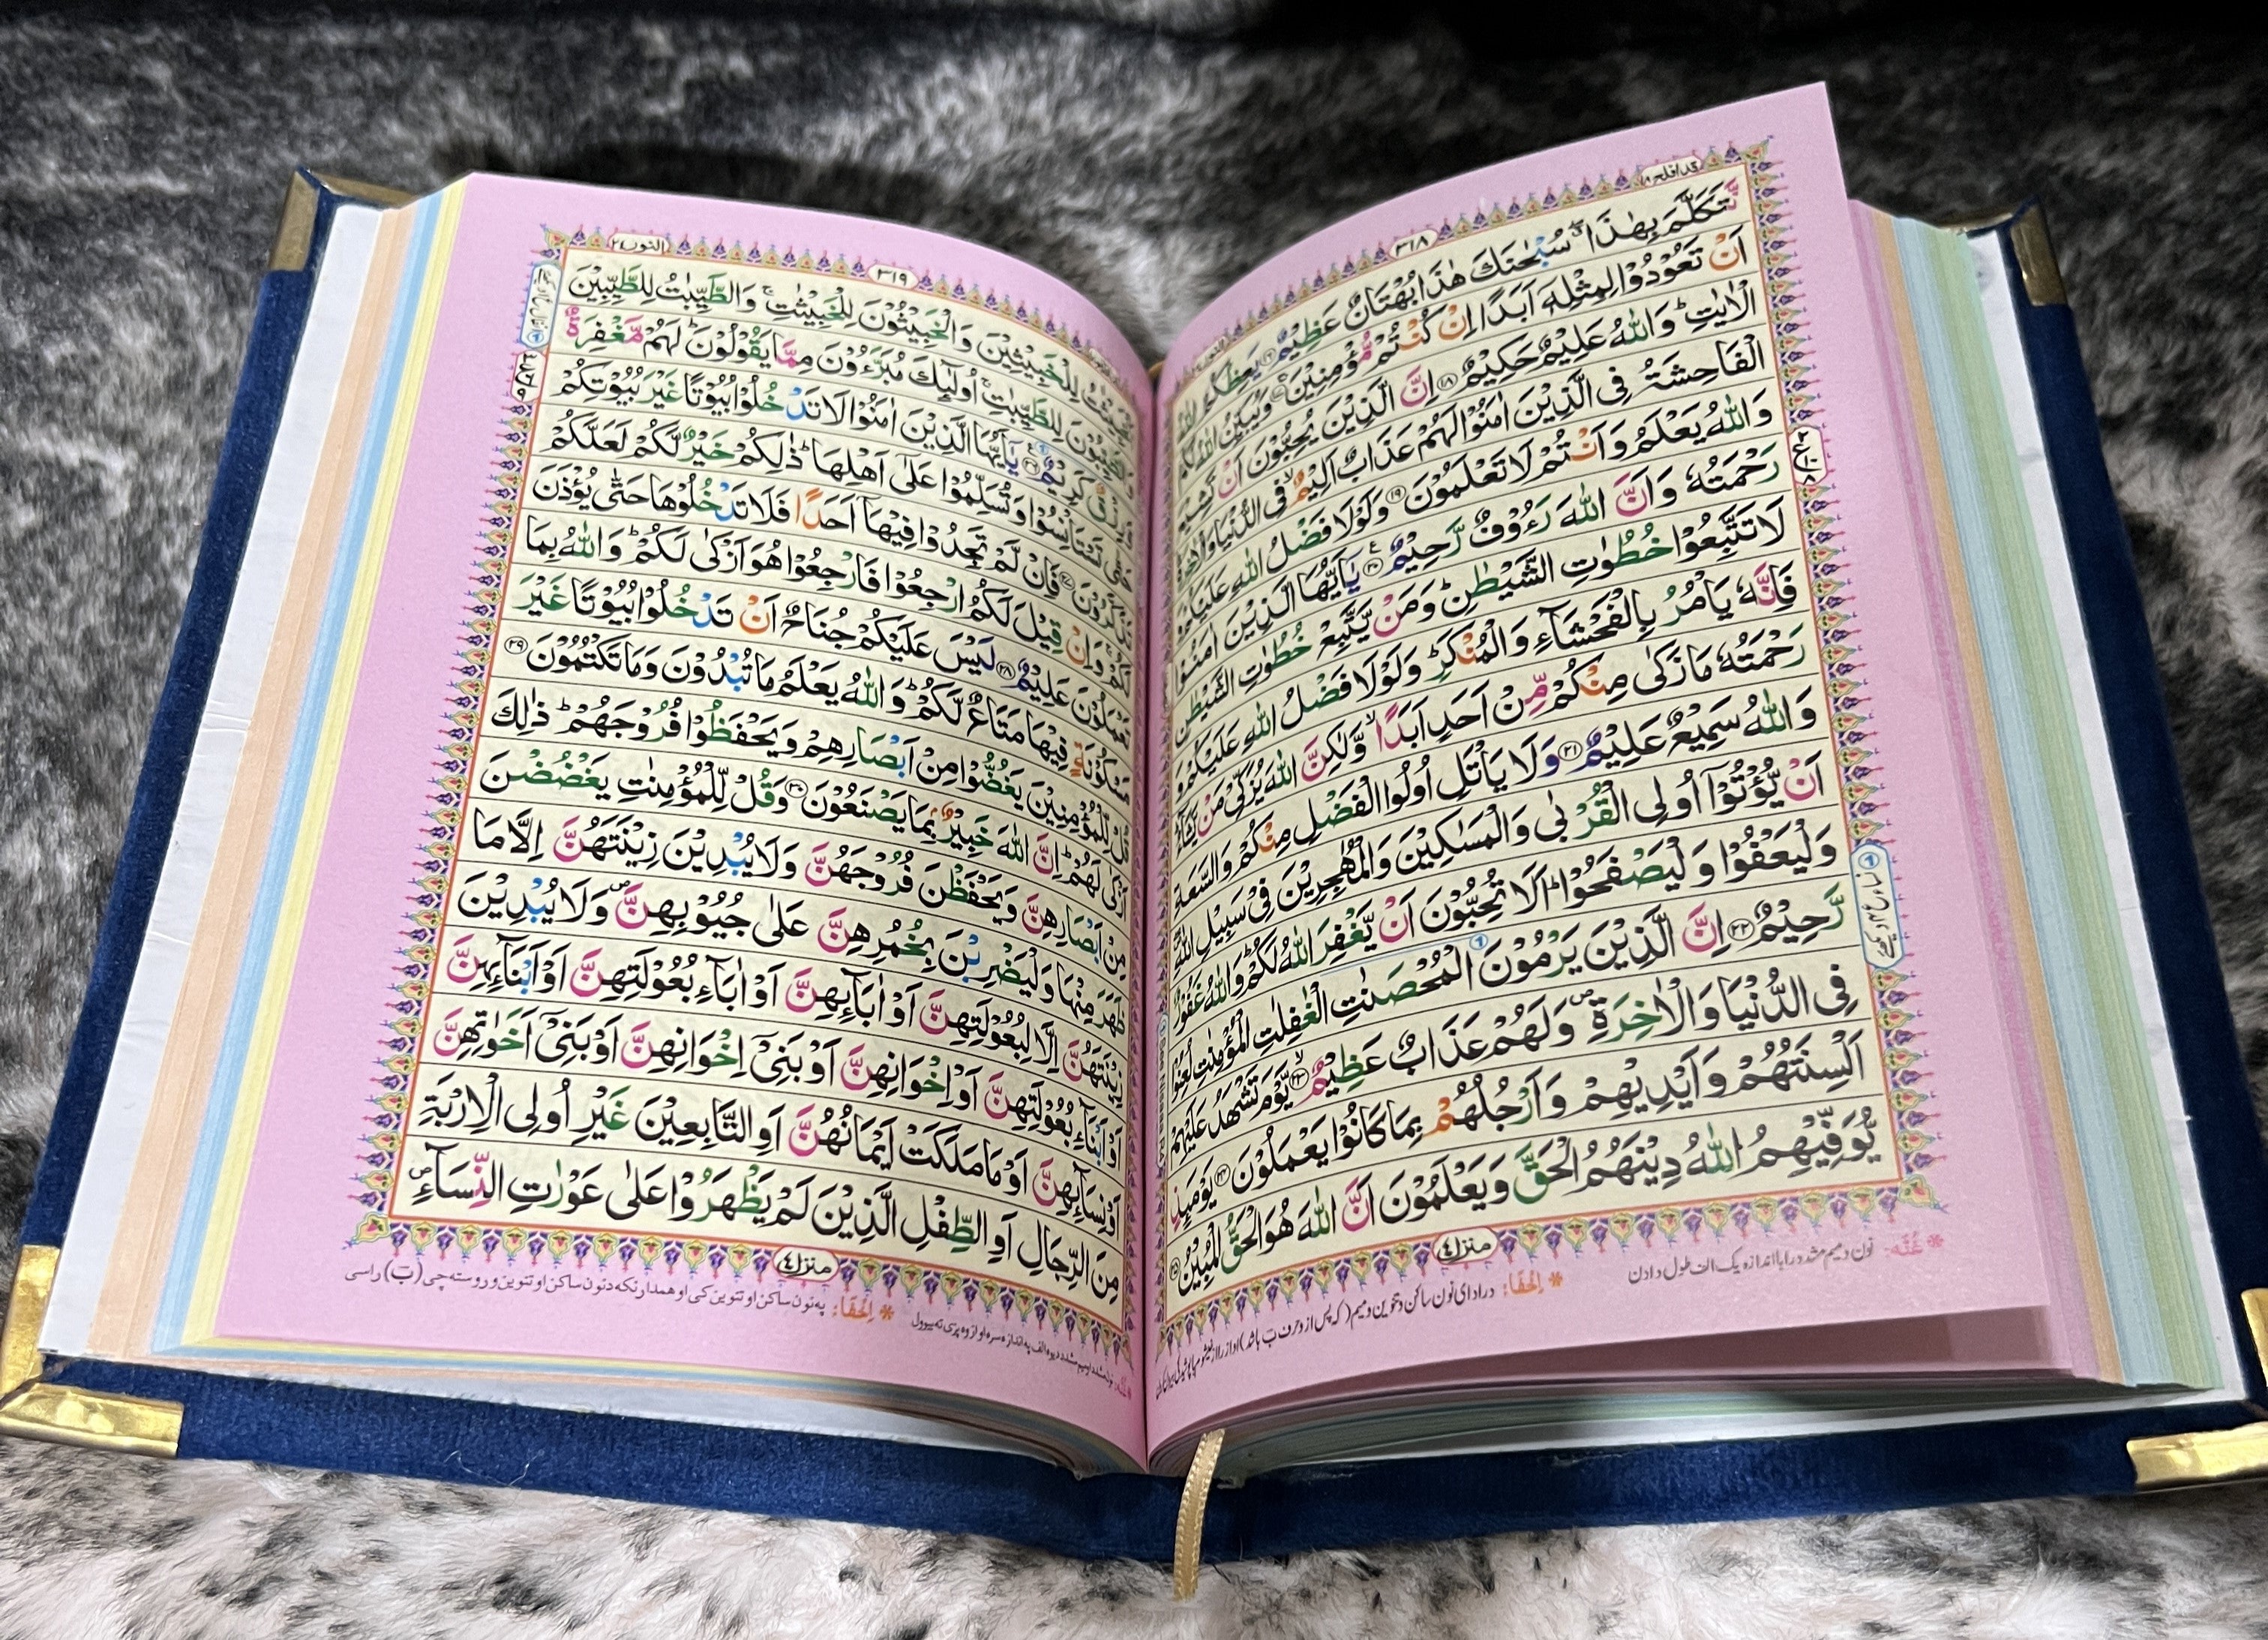 قد افلح ١٨
٣١٨
نَّتَكَلَّمَ بِهٰذَا ۖ سُبْحٰنَكَ هٰذَا بُهْتَانٌ عَظِيْمٌ ١٦ يَعِظُكُمُ اللّٰهُ
اَنْ تَعُوْدُوْا لِمِثْلِهٖٓ اَبَدًا اِنْ كُنْتُمْ مُّؤْمِنِيْنَ ١٧ وَيُبَيِّنُ اللّٰهُ لَكُمُ
الْاٰيٰتِ ؕ وَاللّٰهُ عَلِيْمٌ حَكِيْمٌ ١٨ اِنَّ الَّذِيْنَ يُحِبُّوْنَ اَنْ تَشِيْعَ
الْفَاحِشَةُ فِى الَّذِيْنَ اٰمَنُوْا لَهُمْ عَذَابٌ اَلِيْمٌ ۙ فِى الدُّنْيَا وَالْاٰخِرَةِ
وَاللّٰهُ يَعْلَمُ وَاَنْتُمْ لَا تَعْلَمُوْنَ ١٩ وَلَوْلَا فَضْلُ اللّٰهِ عَلَيْكُمْ وَ
رَحْمَتُهٗ وَاَنَّ اللّٰهَ رَءُوْفٌ رَّحِيْمٌ ٢٠ يٰٓاَيُّهَا الَّذِيْنَ اٰمَنُوْا
لَا تَتَّبِعُوْا خُطُوٰتِ الشَّيْطٰنِ ؕ وَمَنْ يَّتَّبِعْ خُطُوٰتِ الشَّيْطٰنِ
فَاِنَّهٗ يَاْمُرُ بِالْفَحْشَآءِ وَالْمُنْكَرِ ؕ وَلَوْلَا فَضْلُ اللّٰهِ عَلَيْكُمْ وَ
رَحْمَتُهٗ مَا زَكٰى مِنْكُمْ مِّنْ اَحَدٍ اَبَدًا ۙ وَّلٰكِنَّ اللّٰهَ يُزَكِّىْ مَنْ يَّشَآءُ
وَاللّٰهُ سَمِيْعٌ عَلِيْمٌ ٢١ وَلَا يَاْتَلِ اُولُوا الْفَضْلِ مِنْكُمْ وَالسَّعَةِ
اَنْ يُّؤْتُوْٓا اُولِى الْقُرْبٰى وَالْمَسٰكِيْنَ وَالْمُهٰجِرِيْنَ فِىْ سَبِيْلِ اللّٰهِ
وَلْيَعْفُوْا وَلْيَصْفَحُوْا ؕ اَلَا تُحِبُّوْنَ اَنْ يَّغْفِرَ اللّٰهُ لَكُمْ ؕ وَاللّٰهُ غَفُوْرٌ
رَّحِيْمٌ ٢٢ اِنَّ الَّذِيْنَ يَرْمُوْنَ الْمُحْصَنٰتِ الْغٰفِلٰتِ الْمُؤْمِنٰتِ لُعِنُوْا
فِى الدُّنْيَا وَالْاٰخِرَةِ ۪ وَلَهُمْ عَذَابٌ عَظِيْمٌ ٢٣ يَّوْمَ تَشْهَدُ عَلَيْهِمْ
اَلْسِنَتُهُمْ وَاَيْدِيْهِمْ وَاَرْجُلُهُمْ بِمَا كَانُوْا يَعْمَلُوْنَ ٢٤ يَوْمَئِذٍ
يُّوَفِّيْهِمُ اللّٰهُ دِيْنَهُمُ الْحَقَّ وَيَعْلَمُوْنَ اَنَّ اللّٰهَ هُوَ الْحَقُّ الْمُبِيْنُ ٢٥
منزل ٤
* غُنّه: نون و میم مشدد را به اندازه یک الف طول دادن
* اِخفَا:
٣١٩
النور ٢٤
اَلْخَبِيْثٰتُ لِلْخَبِيْثِيْنَ وَالْخَبِيْثُوْنَ لِلْخَبِيْثٰتِ ۚ وَالطَّيِّبٰتُ لِلطَّيِّبِيْنَ
وَالطَّيِّبُوْنَ لِلطَّيِّبٰتِ ۚ اُولٰٓئِكَ مُبَرَّءُوْنَ مِمَّا يَقُوْلُوْنَ ؕ لَهُمْ مَّغْفِرَةٌ
وَّرِزْقٌ كَرِيْمٌ ٢٦ يٰٓاَيُّهَا الَّذِيْنَ اٰمَنُوْا لَا تَدْخُلُوْا بُيُوْتًا غَيْرَ بُيُوْتِكُمْ
حَتّٰى تَسْتَاْنِسُوْا وَتُسَلِّمُوْا عَلٰٓى اَهْلِهَا ؕ ذٰلِكُمْ خَيْرٌ لَّكُمْ لَعَلَّكُمْ
تَذَكَّرُوْنَ ٢٧ فَاِنْ لَّمْ تَجِدُوْا فِيْهَآ اَحَدًا فَلَا تَدْخُلُوْهَا حَتّٰى يُؤْذَنَ
لَكُمْ ۚ وَاِنْ قِيْلَ لَكُمُ ارْجِعُوْا فَارْجِعُوْا هُوَ اَزْكٰى لَكُمْ ؕ وَاللّٰهُ بِمَا
تَعْمَلُوْنَ عَلِيْمٌ ٢٨ لَيْسَ عَلَيْكُمْ جُنَاحٌ اَنْ تَدْخُلُوْا بُيُوْتًا غَيْرَ
مَسْكُوْنَةٍ فِيْهَا مَتَاعٌ لَّكُمْ ؕ وَاللّٰهُ يَعْلَمُ مَا تُبْدُوْنَ وَمَا تَكْتُمُوْنَ ٢٩
قُلْ لِّلْمُؤْمِنِيْنَ يَغُضُّوْا مِنْ اَبْصَارِهِمْ وَيَحْفَظُوْا فُرُوْجَهُمْ ؕ ذٰلِكَ
اَزْكٰى لَهُمْ ؕ اِنَّ اللّٰهَ خَبِيْرٌۢ بِمَا يَصْنَعُوْنَ ٣٠ وَقُلْ لِّلْمُؤْمِنٰتِ يَغْضُضْنَ
مِنْ اَبْصَارِهِنَّ وَيَحْفَظْنَ فُرُوْجَهُنَّ وَلَا يُبْدِيْنَ زِيْنَتَهُنَّ اِلَّا مَا
ظَهَرَ مِنْهَا وَلْيَضْرِبْنَ بِخُمُرِهِنَّ عَلٰى جُيُوْبِهِنَّ ۪ وَلَا يُبْدِيْنَ
زِيْنَتَهُنَّ اِلَّا لِبُعُوْلَتِهِنَّ اَوْ اٰبَآئِهِنَّ اَوْ اٰبَآءِ بُعُوْلَتِهِنَّ اَوْ اَبْنَآئِهِنَّ
اَوْ اَبْنَآءِ بُعُوْلَتِهِنَّ اَوْ اِخْوَانِهِنَّ اَوْ بَنِىْٓ اِخْوَانِهِنَّ اَوْ بَنِىْٓ اَخَوٰتِهِنَّ
اَوْ نِسَآئِهِنَّ اَوْ مَا مَلَكَتْ اَيْمَانُهُنَّ اَوِ التَّابِعِيْنَ غَيْرِ اُولِى الْاِرْبَةِ
مِنَ الرِّجَالِ اَوِ الطِّفْلِ الَّذِيْنَ لَمْ يَظْهَرُوْا عَلٰى عَوْرٰتِ النِّسَآءِ ۪
منزل ٤
* اِخفَا: په نون ساکن او تنوین کی او همدارنکه دنون ساکن او تنوین وروسته چی (ب) راسی